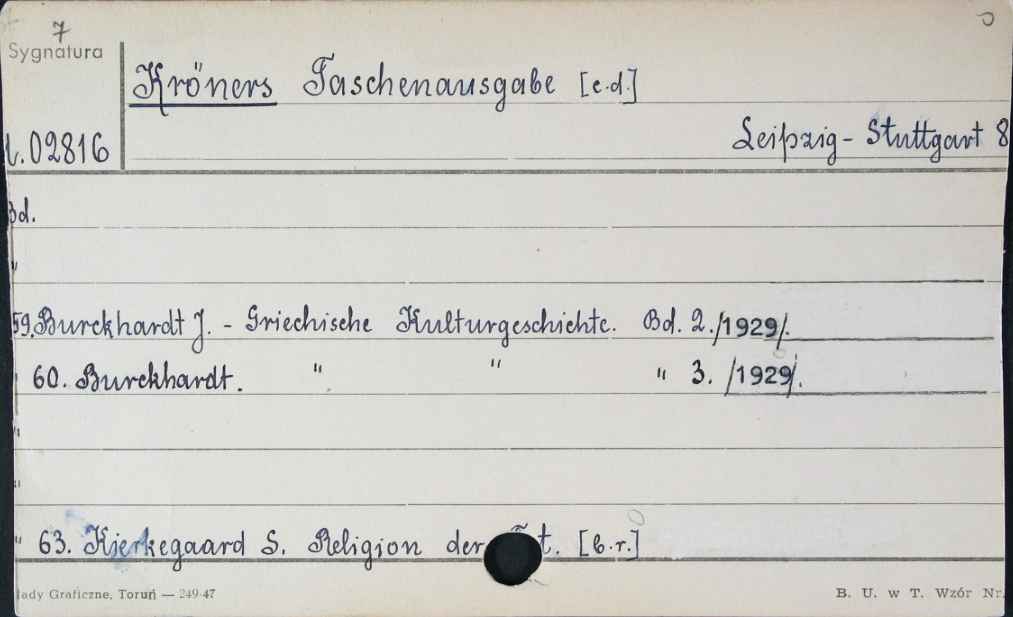 7
Sygnatura
Kröners Taschenausgabe [c.d.]
02816
Leipzig - Stuttgart 8
Bd.
"
59. Burckhardt J. - Griechische Kulturgeschichte. Bd. 2. /1929/.
60. Burckhardt. " " " 3. /1929/.
"
"
" 63. Kierkegaard S. Religion der [b.r.]
Graficzne, Toruń — 249-47
B. U. w T. Wzór Nr.